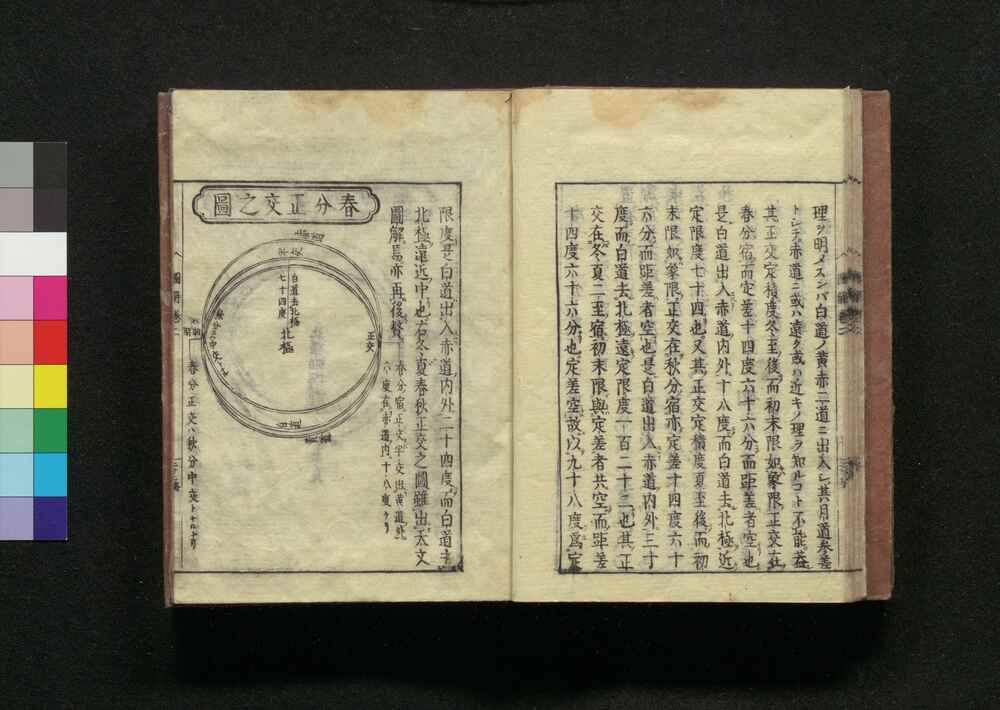 理ヲ明メスンバ白道ノ黄赤二道ニ出入し其月道参差
トシテ赤道ニ或ハ遠ク或ハ近キノ理ヲ知ルコト不能蓋
其正交定積度冬至後而初末限如象限正交在
春分宿而定差十四度六十六分而距差者空也
是白道出入赤道内外十八度而白道去北極近
定限度七十四也又其正交定積度夏至後而初
末限如象限正交在秋分宿亦定差十四度六十
六分而距差者空也是白道出入赤道内外三十
度而白道去北極遠定限度一百二十二也其正
交在冬夏二至宿初末限與定差者共空而距差
十四度六十六分也定差空故以九十八度為定
限度是白道出入赤道内外二十四度而白道去
北極遠近中也右冬夏春秋正交之圖雖出天文
圖解焉亦再後贅
春分宿正交半交出黄道北
六度在赤道内十八度
春分正交之圖
正交
半交
白道去北極
七十四度
北極
春分正交ハ秋分中交ト